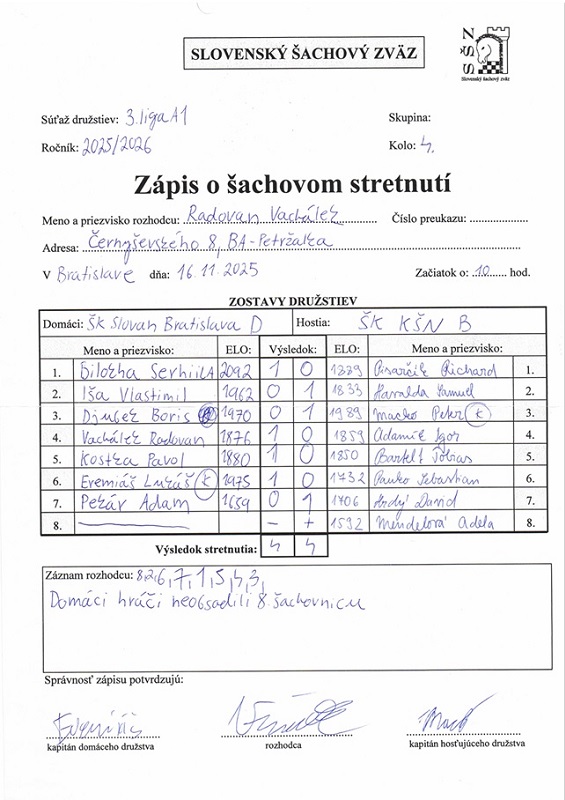 SLOVENSKÝ ŠACHOVÝ ZVÄZ
SŠZ
Slovenský šachový zväz
Súťaž družstiev: 3. liga A1 Skupina:
Ročník: 2025/2026 Kolo: 4.
Zápis o šachovom stretnutí
Meno a priezvisko rozhodcu: Radovan Vachálek Číslo preukazu:
Adresa: Černyševského 8, BA-Petržalka
V Bratislave dňa: 16.11.2025 Začiatok o: 10 hod.
ZOSTAVY DRUŽSTIEV
Domáci: ŠK Slovan Bratislava D Hostia: ŠK KŠN B
Meno a priezvisko: ELO: Výsledok: ELO: Meno a priezvisko:
1. Bilozha Serhii 2092 1 0 1889 Pisarčík Richard 1.
2. Iša Vlastimil 1962 0 1 1833 Samuel 2.
3. Boris 1970 0 1 1989 Macko Peter K 3.
4. Vachálek Radovan 1876 1 0 1859 Adamik Igor 4.
5. Kostka Pavol 1880 1 0 1850 Bartelt Tobias 5.
6. Eremiáš Lukáš K 1975 1 0 1732 Panko Sebastian 6.
7. Pekár Adam 1659 0 1 1706 David 7.
8. – + 1592 Mendelová Adela 8.
Výsledok stretnutia: 4 4
Záznam rozhodcu: 8,2,6,7,1,5,4,3,
Domáci hráči neobsadili 8. šachovnicu
Správnosť zápisu potvrdzujú:
kapitán domáceho družstva rozhodca kapitán hosťujúceho družstva